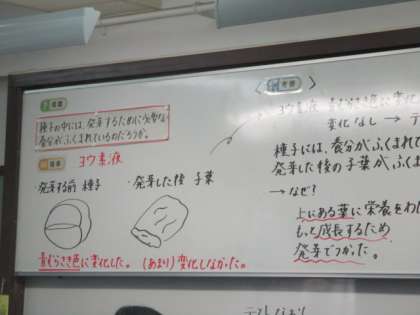 問題
種子の中には、発芽するために必要な
養分がふくまれているのだろうか。
結果
ヨウ素液
・発芽する前 種子
・発芽した後 子葉
青むらさき色に変化した。
(あまり)変化しなかった。
考察
ヨウ素液 青むらさき色に変化
変化なし →
種子には、養分がふくまれて
発芽した後の子葉がふくま
→なぜ?
上にある葉に栄養をわ
もっと成長するため
発芽でつかった。